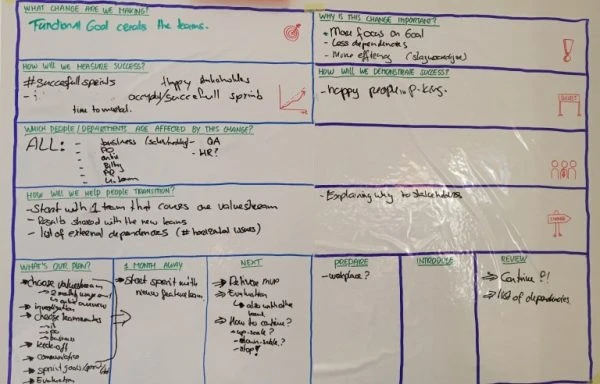 WHAT CHANGE ARE WE MAKING?
Functional Goal the teams.
WHY IS THIS CHANGE IMPORTANT?
More focus on Goal
- Less dependencies
- More efficiency
HOW WILL WE MEASURE SUCCESS?
#succesfull sprints
Happy stakeholders
succesfull sprints
time to market.
HOW WILL WE DEMONSTRATE SUCCESS?
- happy people
WHICH PEOPLE/DEPARTMENTS ARE AFFECTED BY THIS CHANGE?
ALL:
- business
- PO
- QA
- HR?
HOW WILL WE HELP PEOPLE TRANSITION?
- Start with 1 team that covers one valuestream
- Results shared with the new teams
- list of external dependencies (# horizontal issues)
- Explaining why to stakeholders
CHANGE
WHAT'S OUR PLAN?
choose valuestream
investigation
choose teammates
PO
business
kick-off
communication
sprint goals
Evaluation
1 MONTH AWAY
Start sprint with new feature team
NEXT
Evaluation
also with the team
How to continue?
up-scale?
down-scale?
stop!
PREPARE
- workplace?
INTRODUCE
REVIEW
Continue ?!
list of dependencies